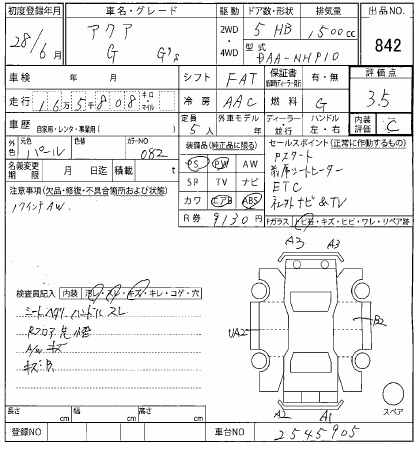 初度登録年月 車名・グレード 駆動 ドア数・形状 排気量 出品NO.
28/6月 アクア G G's 2WD・4WD 5 HB 1500cc 842
型式 DAA-NHP10
車検 年 月 シフト FAT 保証書 有・無 評価点
走行 16万5千808 キロ マイル 冷房 AAC 燃料 G 3.5
車歴 自家用・レンタ・事業用( ) 定員 5人 外車モデル 年 ディーラー・並行 ハンドル 左・右 内装評価 C
外色 元色 パール 色替 カラーNO 082 装備品(純正品に限る) セールスポイント(正常に作動するもの)
名義変更期限 月 日迄 積載 t PS PW AW
アスタート
前席シートヒーター
注意事項(欠品・修復・不具合箇所および状態) SR TV ナビ ETC
17インチAW カワ エアB ABS ナビ&TV
R券 9130円 Fガラス トビ石・キズ・ヒビ・ワレ・リペア跡
A3 A3
検査員記入 内装 汚レ・スレ・キズ・キレ・コゲ・穴
ハンドルスレ
UA2 B2
Rフロア
A/W キズ
スペア
A2 A1
長さ cm 幅 cm 高さ cm
登録NO 車台NO 2545905